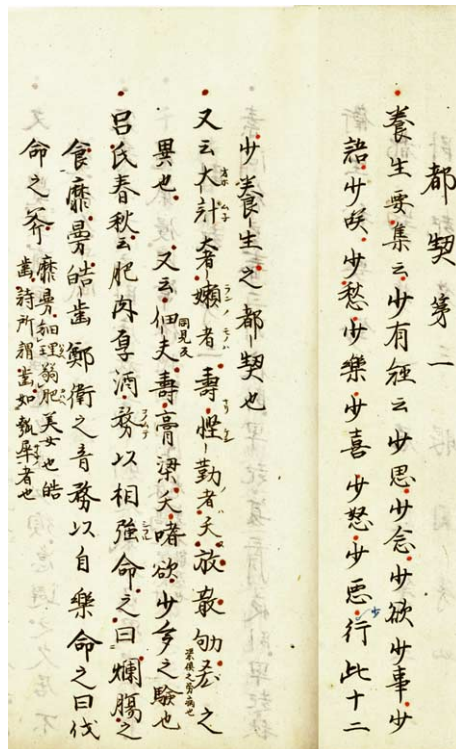 都契第二
養生要集云少有經云少思少念少欲少事少
語少咲少愁少樂少喜少怒少惡行此十二
少養生之都契也
又云大計者嬾者壽慳勤者夭放散劬悋之
異也又云佃夫壽膏粱夭嗜欲少多之驗也
呂氏春秋云肥肉厚酒務以相強命之曰爛腸之
食靡曼皓齒鄭衛之音務以自樂命之曰伐
命之斧
靡曼細理弱肥美女也皓
齒詩所謂齒如瓠犀者也